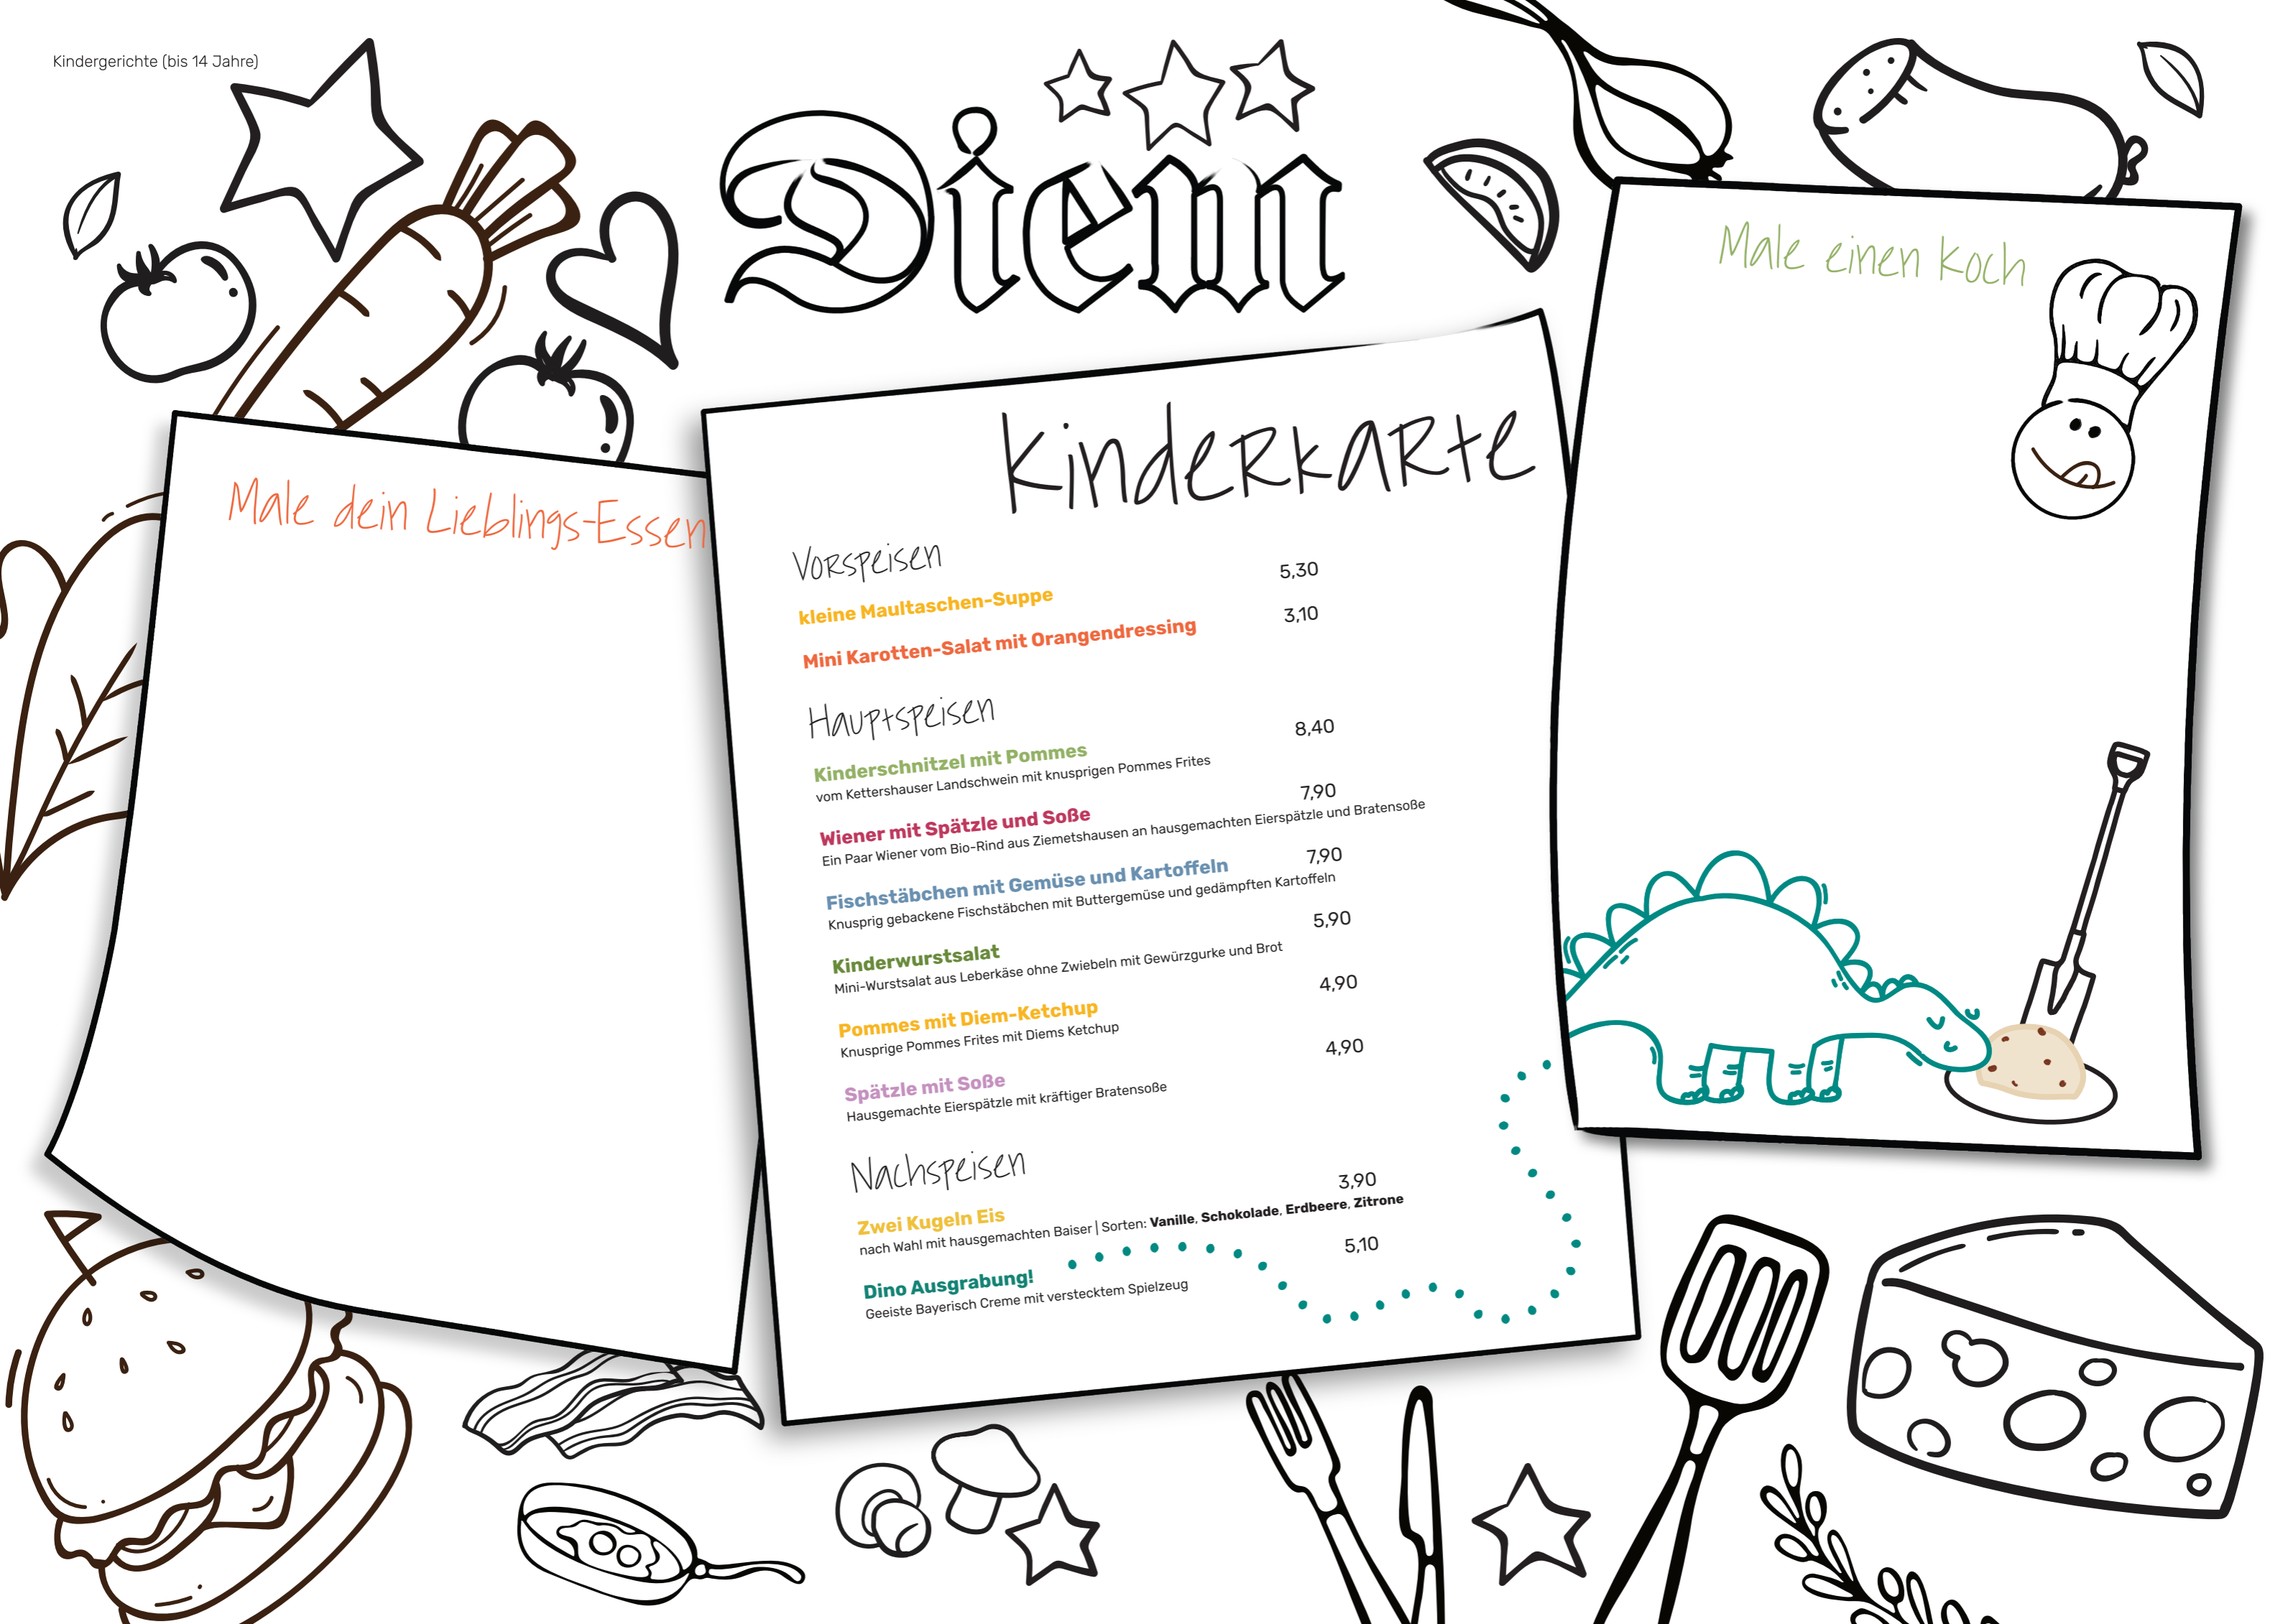 Kindergerichte (bis 14 Jahre)
Diem
Male dein Lieblings-Essen
Kinderkarte
Vorspeisen
kleine Maultaschen-Suppe 5,30
Mini Karotten-Salat mit Orangendressing 3,10
Hauptspeisen
Kinderschnitzel mit Pommes 8,40
vom Kettershauser Landschwein mit knusprigen Pommes Frites
Wiener mit Spätzle und Soße 7,90
Ein Paar Wiener vom Bio-Rind aus Ziemetshausen an hausgemachten Eierspätzle und Bratensoße
Fischstäbchen mit Gemüse und Kartoffeln 7,90
Knusprig gebackene Fischstäbchen mit Buttergemüse und gedämpften Kartoffeln
Kinderwurstsalat 5,90
Mini-Wurstsalat aus Leberkäse ohne Zwiebeln mit Gewürzgurke und Brot
Pommes mit Diem-Ketchup 4,90
Knusprige Pommes Frites mit Diems Ketchup
Spätzle mit Soße 4,90
Hausgemachte Eierspätzle mit kräftiger Bratensoße
Nachspeisen
Zwei Kugeln Eis 3,90
nach Wahl mit hausgemachten Baiser | Sorten: Vanille, Schokolade, Erdbeere, Zitrone
Dino Ausgrabung! 5,10
Geeiste Bayerisch Creme mit verstecktem Spielzeug
Male einen Koch